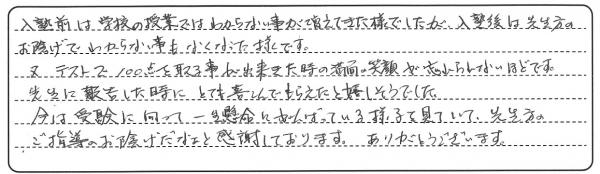 入塾前は学校の授業ではわからない事が増えてきた様でしたが、入塾後は先生方の
お陰げで、わからない事もなくなった様です。
又、テストで100点を取る事が出来た時の満面の笑顔が忘れられないほどです。
先生に報告した時に とても喜んでもらえたと嬉しそうでした。
今は受験に向って一生懸命にがんばっている様子を見ていて、先生方の
ご指導のお陰げだなぁと感謝しております。ありがとうございます。